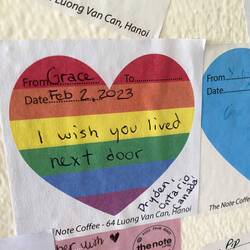 Luong Van Can, Hanoi
From Grace To
Date Feb 2, 2023
I wish you lived
next door
Dryden,
Ontario
Canada
Note Coffee - 64 Luong Van Can, Hanoi
Note Coffee
her wish
the note